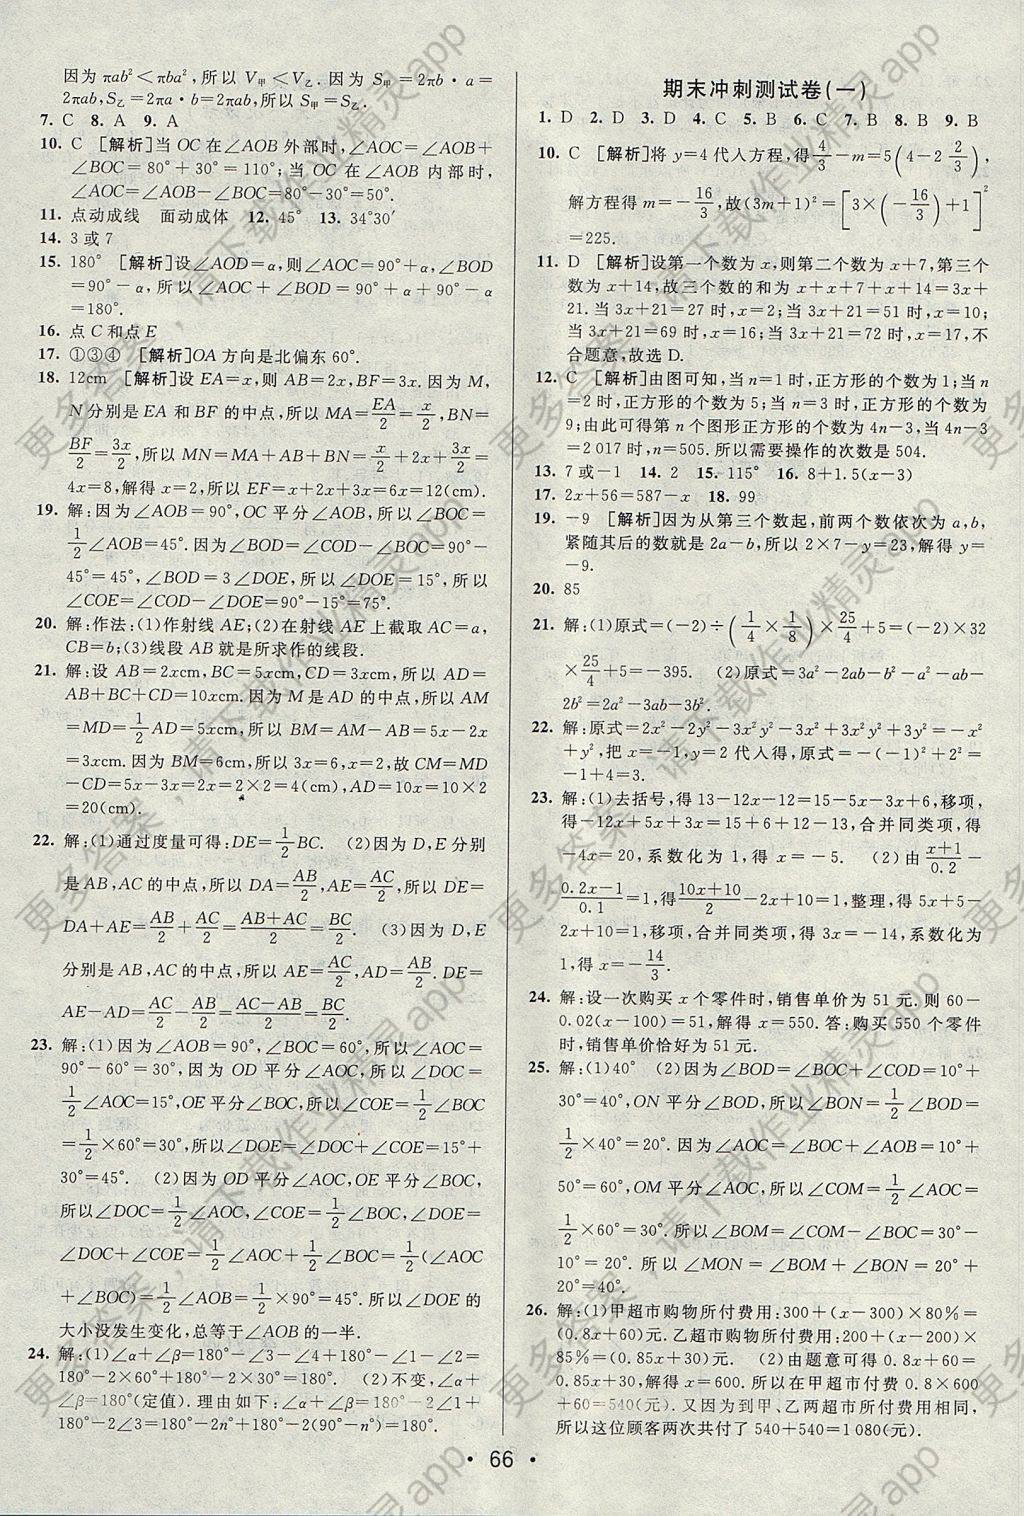 因为 πab²＜πba²,所以 V甲＜V乙. 因为 S甲＝2πb·a＝
2πab,S乙＝2πa·b＝2πab,所以 S甲＝S乙.
7. C　8. A　9. A
10. C　[解析]当 OC 在∠AOB 外部时,∠AOC＝∠AOB＋
∠BOC＝80°＋30°＝110°;当 OC 在∠AOB 内部时,
∠AOC＝∠AOB－∠BOC＝80°－30°＝50°.
11. 点动成线　面动成体　12. 45°　13. 34°30′
14. 3 或 7
15. 180°　[解析]设∠AOD＝α,则∠AOC＝90°＋α,∠BOD
＝90°－α,所以∠AOC＋∠BOD＝90°＋α＋90°－α
＝180°.
16. 点 C 和点 E
17. ①③④　[解析]OA 方向是北偏东 60°.
18. 12cm　[解析]设 EA＝x,则 AB＝2x,BF＝3x. 因为 M,
N 分别是 EA 和 BF 的中点,所以 MA＝EA/2＝x/2,BN＝
BF/2＝3x/2. 所以 MN＝MA＋AB＋BN＝x/2＋2x＋3x/2＝
4x＝8,解得 x＝2,所以 EF＝x＋2x＋3x＝6x＝12(cm).
19. 解:因为∠AOB＝90°,OC 平分∠AOB,所以∠BOC＝
1/2∠AOB＝45°. 因为∠BOD＝∠COD－∠BOC＝90°－
45°＝45°,∠BOD＝3∠DOE,所以∠DOE＝15°,所以
∠COE＝∠COD－∠DOE＝90°－15°＝75°.
20. 解:作法:(1)作射线 AE;(2)在射线 AE 上截取 AC＝a,
CB＝b;(3)线段 AB 就是所求作的线段.
21. 解:设 AB＝2xcm,BC＝5xcm,CD＝3xcm,所以 AD＝
AB＋BC＋CD＝10xcm. 因为 M 是 AD 的中点,所以 AM
＝MD＝1/2AD＝5xcm,所以 BM＝AM－AB＝5x－2x
＝3xcm. 因为 BM＝6cm,所以 3x＝6,x＝2,故 CM＝MD
－CD＝5x－3x＝2x＝2×2＝4(cm),AD＝10x＝10×2
＝20(cm).
22. 解:(1)通过度量可得:DE＝1/2BC.　(2)因为 D,E 分别
是 AB,AC 的中点,所以 DA＝AB/2,AE＝AC/2. 所以 DE＝
DA＋AE＝AB/2＋AC/2＝(AB＋AC)/2＝BC/2.　(3)因为 D,E
分别是 AB,AC 的中点,所以 AE＝AC/2,AD＝AB/2. DE＝
AE－AD＝AC/2－AB/2＝(AC－AB)/2＝BC/2.
23. 解:(1)因为∠AOB＝90°,∠BOC＝60°,所以∠AOC＝
90°－60°＝30°,因为 OD 平分∠AOC,所以∠DOC＝
1/2∠AOC＝15°,OE 平分∠BOC,所以∠COE＝1/2∠BOC
＝1/2×60°＝30°,所以∠DOE＝∠DOC＋∠COE＝15°＋
30°＝45°.　(2)因为 OD 平分∠AOC,OE 平分∠BOC,
所以∠DOC＝1/2∠AOC,∠COE＝1/2∠BOC,∠DOE＝
∠DOC＋∠COE＝1/2∠AOC＋1/2∠BOC＝1/2(∠AOC
＋∠BOC)＝1/2∠AOB＝1/2×90°＝45°. 所以∠DOE 的
大小没发生变化,总等于∠AOB 的一半.
24. 解:(1)∠α＋∠β＝180°－∠3－∠4＋180°－∠1－∠2＝
180°－2×60°＋180°－2×30°＝180°.　(2)不变,∠α＋
∠β＝180°(定值). 理由如下:∠α＋∠β＝180°－2n°＋
180°－2∠1＝180°－2n°＋180°－2(90°－n°)＝180°.
期末冲刺测试卷(一)
1. D　2. D　3. D　4. C　5. C　6. C　7. B　8. B　9. B
10. C　[解析]将 y＝4 代入方程,得 4/3－m＝5(4－2 2/3),
解方程得 m＝－16/3,故(3m＋1)²＝[3×(－16/3)＋1]²
＝225.
11. D　[解析]设第一个数为 x,则第二个数为 x＋7,第三个
数为 x＋14,故三个数的和为 x＋x＋7＋x＋14＝3x＋
21. 当 3x＋21＝27 时,x＝2;当 3x＋21＝51 时,x＝10;
当 3x＋21＝69 时,x＝16;当 3x＋21＝72 时,x＝17,不
合题意,故选 D.
12. C　[解析]由图可知,当 n＝1时,正方形的个数为 1;当 n
＝2 时,正方形的个数为 5;当 n＝3 时,正方形的个数为
9;由此可得第 n 个图形正方形的个数为 4n－3,当 4n－3
＝2 017 时,n＝505. 所以需要操作的次数是 504.
13. 7 或－1　14. 2　15. 115°　16. 8＋1.5(x－3)
17. 2x＋56＝587－x　18. 99
19. －9　[解析]因为从第三个数起,前两个数依次为 a,b,
紧随其后的数就是 2a－b,所以 2×7－y＝23,解得 y＝
－9.
20. 85
21. 解:(1)原式＝(－2)÷(1/4×1/8)×25/4＋5＝(－2)×32
×25/4＋5＝－395.　(2)原式＝3a²－2ab－b²－a²－ab－
2b²＝2a²－3ab－3b².
22. 解:原式＝2x²－2y²－3x²y²－3x²＋3x²y²＋3y²＝－x²
＋y²,把 x＝－1,y＝2 代入得,原式＝－(－1)²＋2²＝
－1＋4＝3.
23. 解:(1)去括号,得 13－12x－12＝15－5x－3x＋6,移项,
得－12x＋5x＋3x＝15＋6＋12－13,合并同类项,得
－4x＝20,系数化为 1,得 x＝－5.　(2)由(x＋1)/0.2－
(0.2x－1)/0.1＝1,得(10x＋10)/2－2x＋10＝1,整理,得 5x＋5－
2x＋10＝1,移项,合并同类项,得 3x＝－14,系数化为
1,得 x＝－14/3.
24. 解:设一次购买 x 个零件时,销售单价为 51 元. 则 60－
0.02(x－100)＝51,解得 x＝550. 答:购买 550 个零件
时,销售单价恰好为 51 元.
25. 解:(1)40°　(2)因为∠BOD＝∠BOC＋∠COD＝10°＋
30°＝40°,ON 平分∠BOD,所以∠BON＝1/2∠BOD＝
1/2×40°＝20°. 因为∠AOC＝∠BOC＋∠AOB＝10°＋
50°＝60°,OM 平分∠AOC,所以∠COM＝1/2∠AOC＝
1/2×60°＝30°. 所以∠BOM＝∠COM－∠BOC＝30°－
10°＝20°. 所以∠MON＝∠BOM＋∠BON＝20°＋
20°＝40°.
26. 解:(1)甲超市购物所付费用:300＋(x－300)×80%＝
(0.8x＋60)元. 乙超市购物所付费用:200＋(x－200)×
85%＝(0.85x＋30)元.　(2)由题意可得 0.8x＋60＝
0.85x＋30,解得 x＝600. 所以在甲超市付款 0.8×600
＋60＝540(元). 又因为到甲、乙两超市购物所付费用相同,
所以这位顾客两次共付了 540＋540＝1 080(元).
· 66 ·
更多答案，请下载作业精灵app